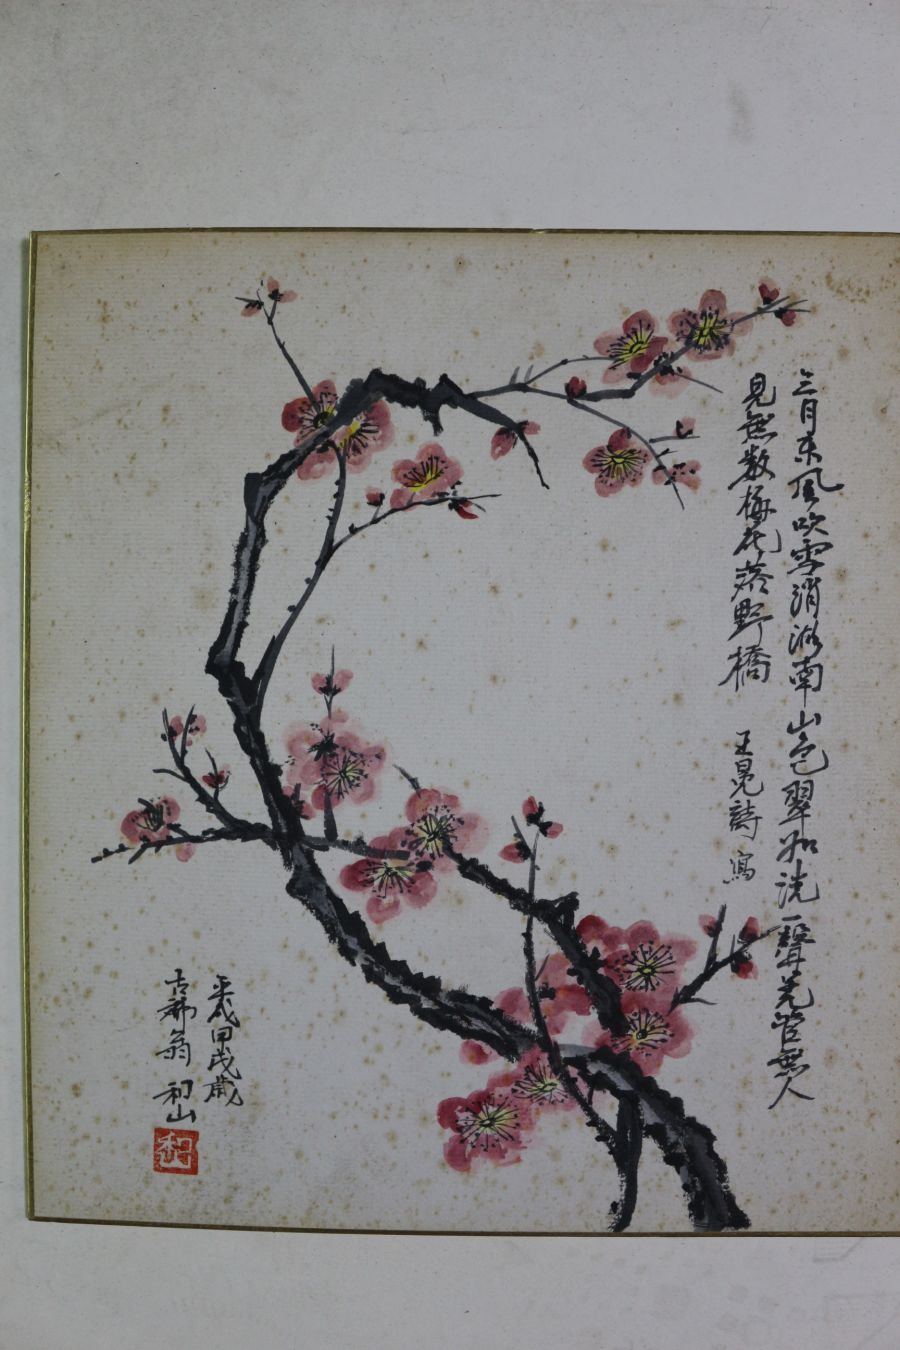 三月東風吹雪消湖南山色翠如洗一聲羌管無人
見無數梅花落野橋
王冕詩 寫
平成甲戌歳
古稀翁 和山
和山